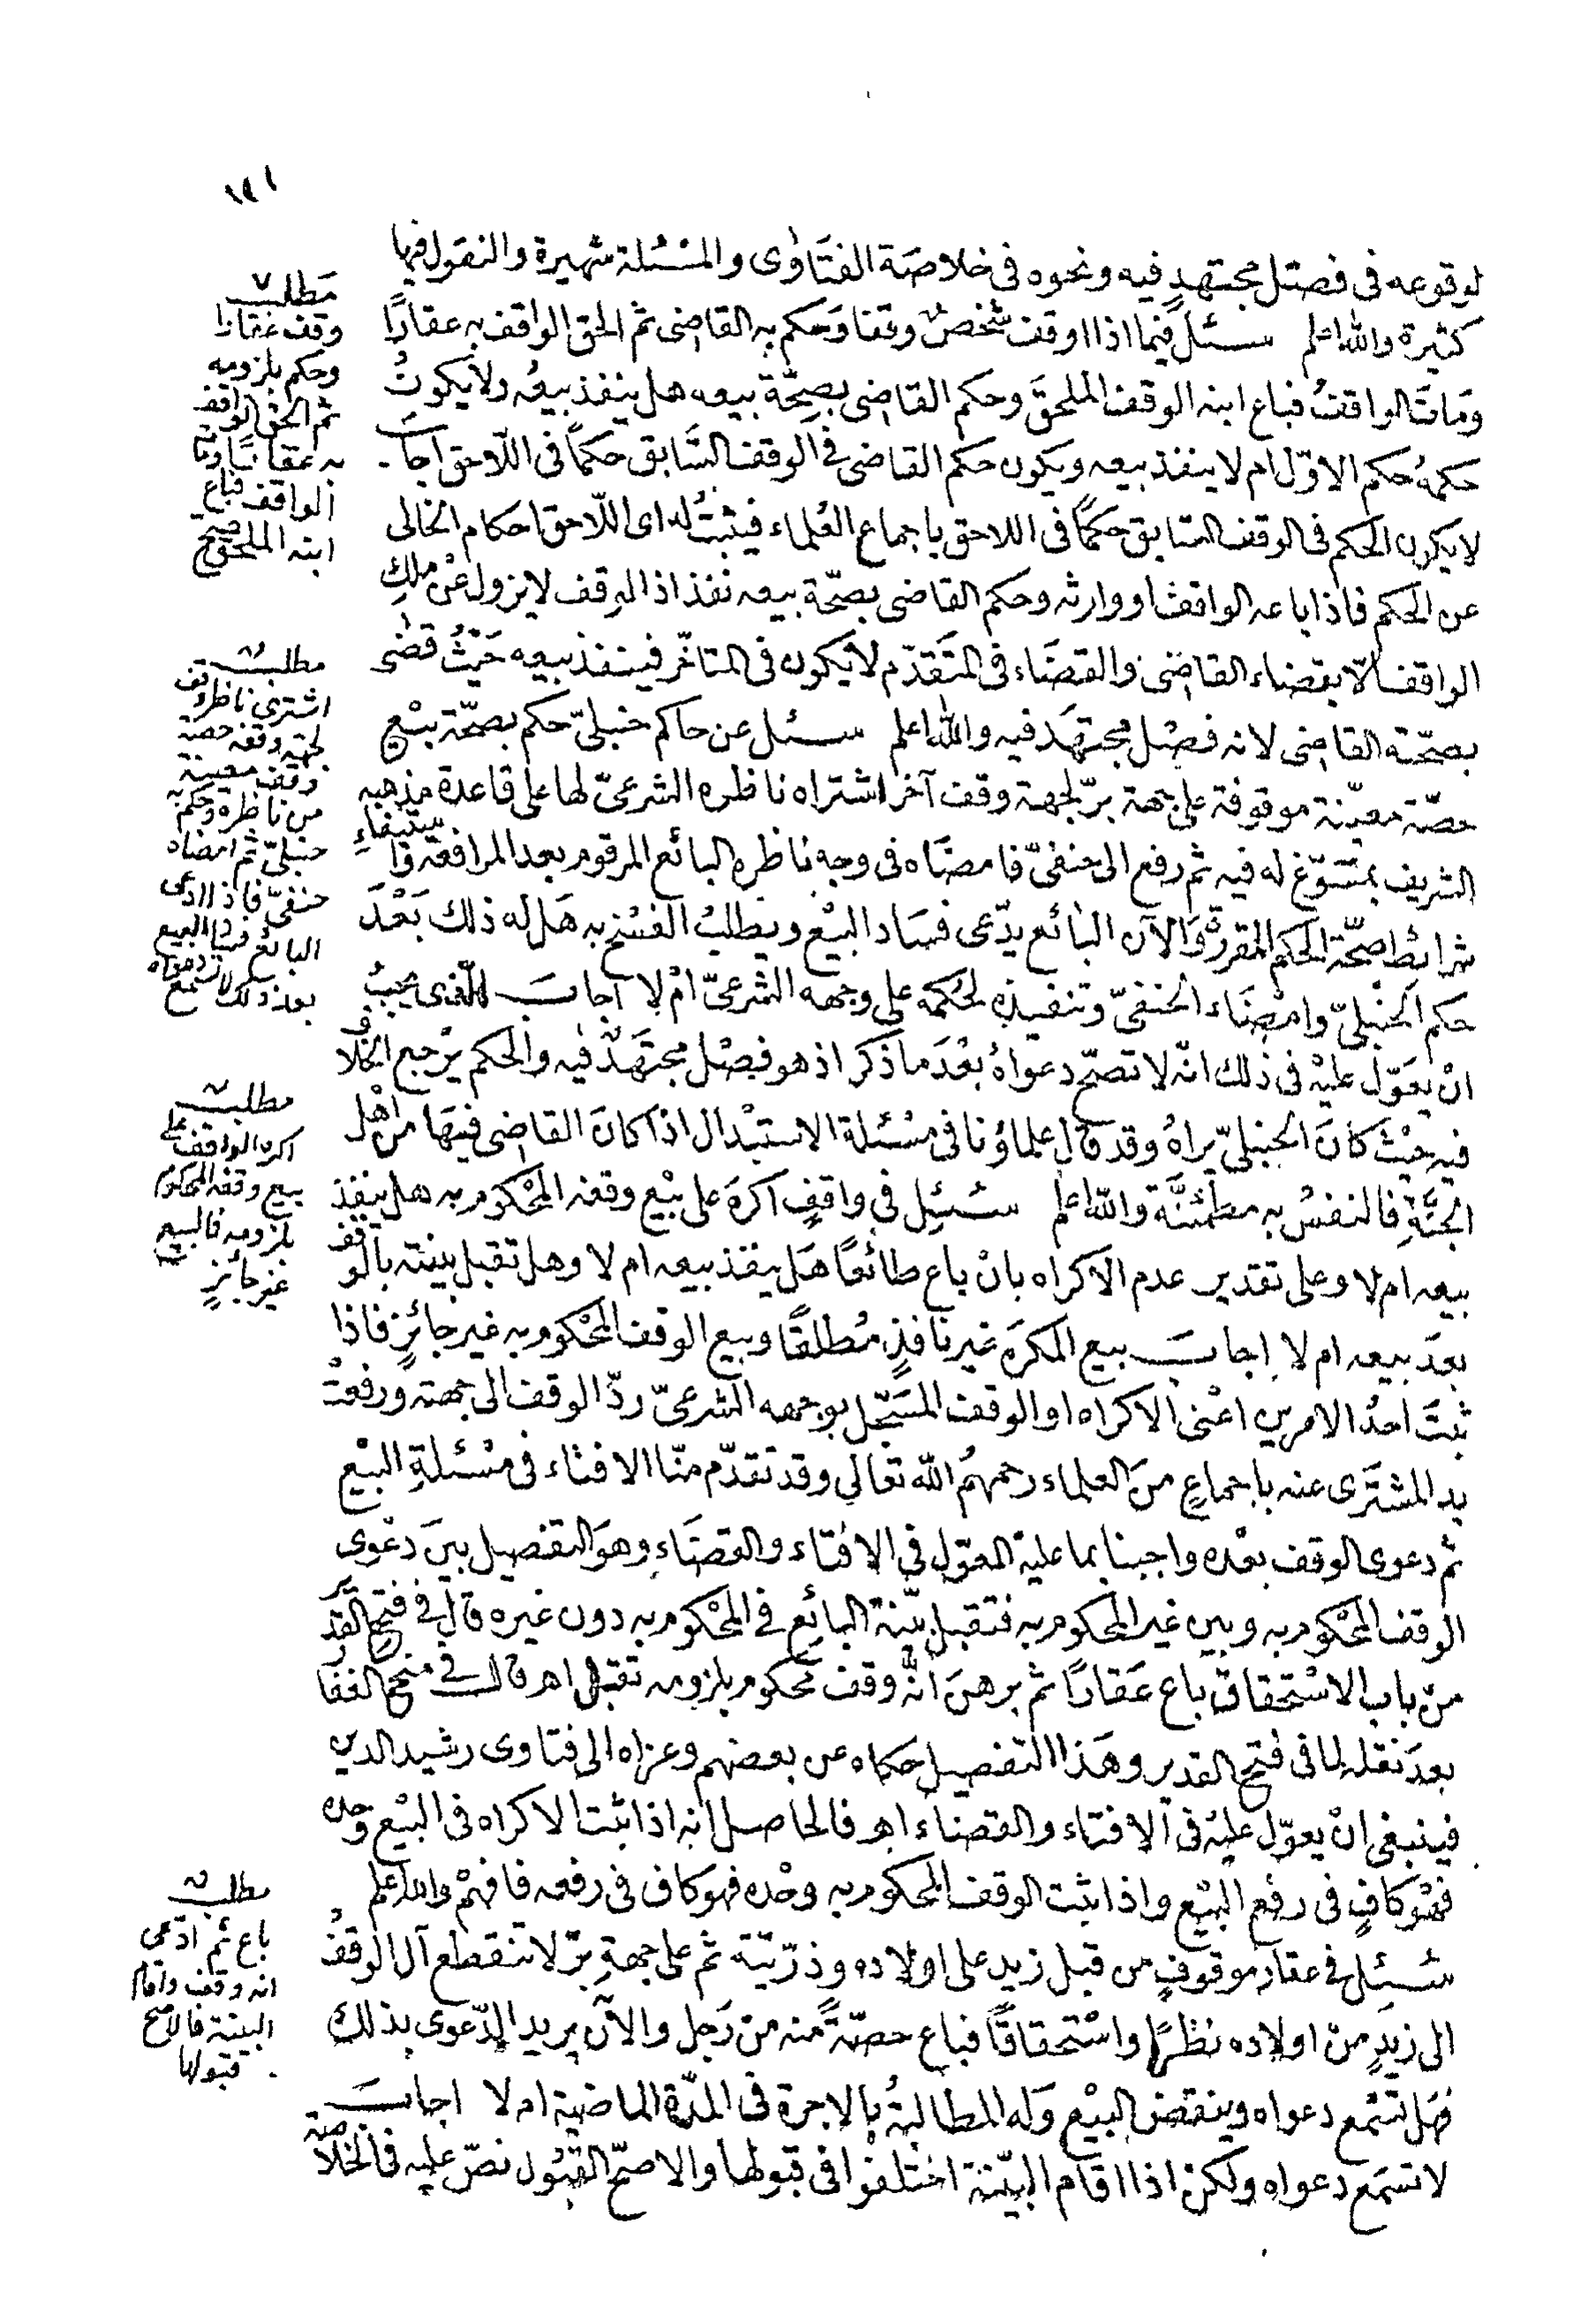 ١٢١
لوقوعه فى فصل مجتهدٍ فيه ونحوه فى خلاصَة الفتَاوٰى والمسْئلة شهيرة والنقول فيها
كثيرة والله اعلم سئل فيما اذا اوقف شخصٌ وقفا وَحكم به القاضى ثم الحق الواقف به عقارًا
وَماتَ الواقفُ فباع ابنه الوقف الملحقَ وحكم القاضى بصحّة بيعه هل ينفذ بيعُه ولا يكونُ
حكمهُ حكم الاوّل ام لا ينفذ بيعه ويكون حكم القاضى فى الوقف السَّابق حكماً فى اللّاحق اجَابَ
لا يكون الحكم فى الوقف السّابق حكمًا فى اللاحق باجماع العُلماء فيثبتُ له اى اللّاحق احكام الخالى
عن الحكم فاذا باعه الواقف او وارثه وحكم القاضى بصحّة بيعه نفذ اذ الوقف لا يزول عنْ ملكِ
الواقف الّا بقضاء القاضى والقضَاء فى المتَقدّم لا يكون فى المتاخّر فينفذ بيعه حَيْثُ قضٰى
بصحّته القاضى لانه فصْل مجتهَد فيه والله اعلم سئل عن حاكم حنبلىّ حكم بصحّة بيْع
حصّة معيّنة موقوفة على جهة برّ لجهة وقف آخر اشتراه ناظره الشرعىّ لها على قاعدة مذهبه
الشريف بمسَوّغ له فيه ثم رفع الى حنفىّ فامضَاه فى وجه ناظره البائع المرقوم بعد المرافعة واستيفاءِ
شرائطِ صحّة الحكم المقررّة وَالآن البائع يدّعى فسَاد البيْع ويطلبُ الفسْخ به هَل له ذلك بَعْدَ
حكم الحنبلىّ وامْضَاء الحنفىّ وتنفيذه لحكمه على وجهه الشرعىّ امْ لا اجابَ الّذى يجبُ
انْ يعَوّل عليْه فى ذٰلك انّه لا تصحّ دعواهُ بعْدَ ما ذكر اذ هو فصْل مجتهَدٌ فيه والحكم يرْجع الخلاف
فيه حيْث كانَ الحنبلىّ يراهُ وقد قال علماؤنا فى مسْئلة الاستبْدال اذا كانَ القاضى فيهَا من اهْل
الجنَّةِ فالنفسُ به مطمئنَّة والله اعلم سُئِل فى واقفٍ اكرهَ على بيْع وقفه المحْكوم به هل ينفذ
بيعه ام لا وعلى تقدير عدم الاكراه بانْ باع طائعًا هَل ينفذ بيعه ام لا وهل تقبل بينته بالوقف
بعدَ بيعه ام لا اجابَ بيع المكرَه غير نافذٍ مُطلقًا وبيع الوقف المحْكوم به غير جائزٍ فاذا
ثبتَ احدُ الامرين اعْنى الاكراه او الوقف المسَجّل بوجهه الشرعىّ ردّ الوقف الى جهته ورفعتْ
يد المشترَى عنه باجماعٍ منَ العلماء رحمهمُ الله تعَالى وقد تقدّم منّا الافتاء فى مسْئلةِ البيْع
ثم دعوى الوقف بعْده واجبنا بما عليْه المعَوّل فى الافتاء والقضَاءِ وهوَ التفصيل بينَ دعْوى
الوقف المحْكوم به وبين غير المحْكوم به فتقبل بيّنة البائِع فى المحْكوم به دون غيره قال فى فتح القدير
منْ باب الاسْتحقاق باع عَقارًا ثم برهنَ انَّه وقف محْكوم بلزومه تقبل اهـ قال فى منح الغفار
بعدَ نقله لما فى فتح القدير وهَذا التفصيل حكاه عن بعضهم وعزاه الى فتاوى رشيد الدين
فينبغى انْ يعوّل عليْه فى الافتاء والقضاء اهـ فالحاصل انه اذا ثبت الاكراه فى البيْع وحده
فهْو كافٍ فى رفع البيْع واذا ثبت الوقف المحكوم به وحْده فهو كاف فى رفعه فافهمْ والله اعلم
سُئِل فى عقار موقوفٍ من قبل زيدٍ على اولاده وذرّيّته ثم على جهةِ برّ لا تنقطع آل الوقفُ
الى زيدٍ منْ اولاده نظرًا واسْتحقاقًا فباع حصّةً منه منْ رَجل والآن يريد الدّعوى بذلك
فهَل تسْمع دعواه وينقض البيْع وَله المطالبةُ بالاجرة فى المدّة الماضية ام لا اجابَ
لا تسمَع دعواه ولكنْ اذا اقام البيّنة اختلفوْا فى قبولها والاصحّ القبُول نصّ عليه فى الخلاصة
مَطلب
وقف عقارا
وحكم بلزومه
ثم الحق الواقف
به عقارًا ومات
الواقف فباع
ابنه الملحق صح
مطلب
اشترى ناظر وقف
لجهة وقفه حصة
وقف معينة
من ناظره وحكم به
حنبلىّ ثم امضاه
حنفىّ فاذا ادعى
البائع فساد البيع
بعد ذلك لا تسمع دعواه
مطلب
اكره الواقف على
بيع وقفه المحكوم
بلزومه فالبيع
غير جائزٍ
مطلب
باع ثم ادّعى
انه وقف واقام
البينة فالاصح
قبولها